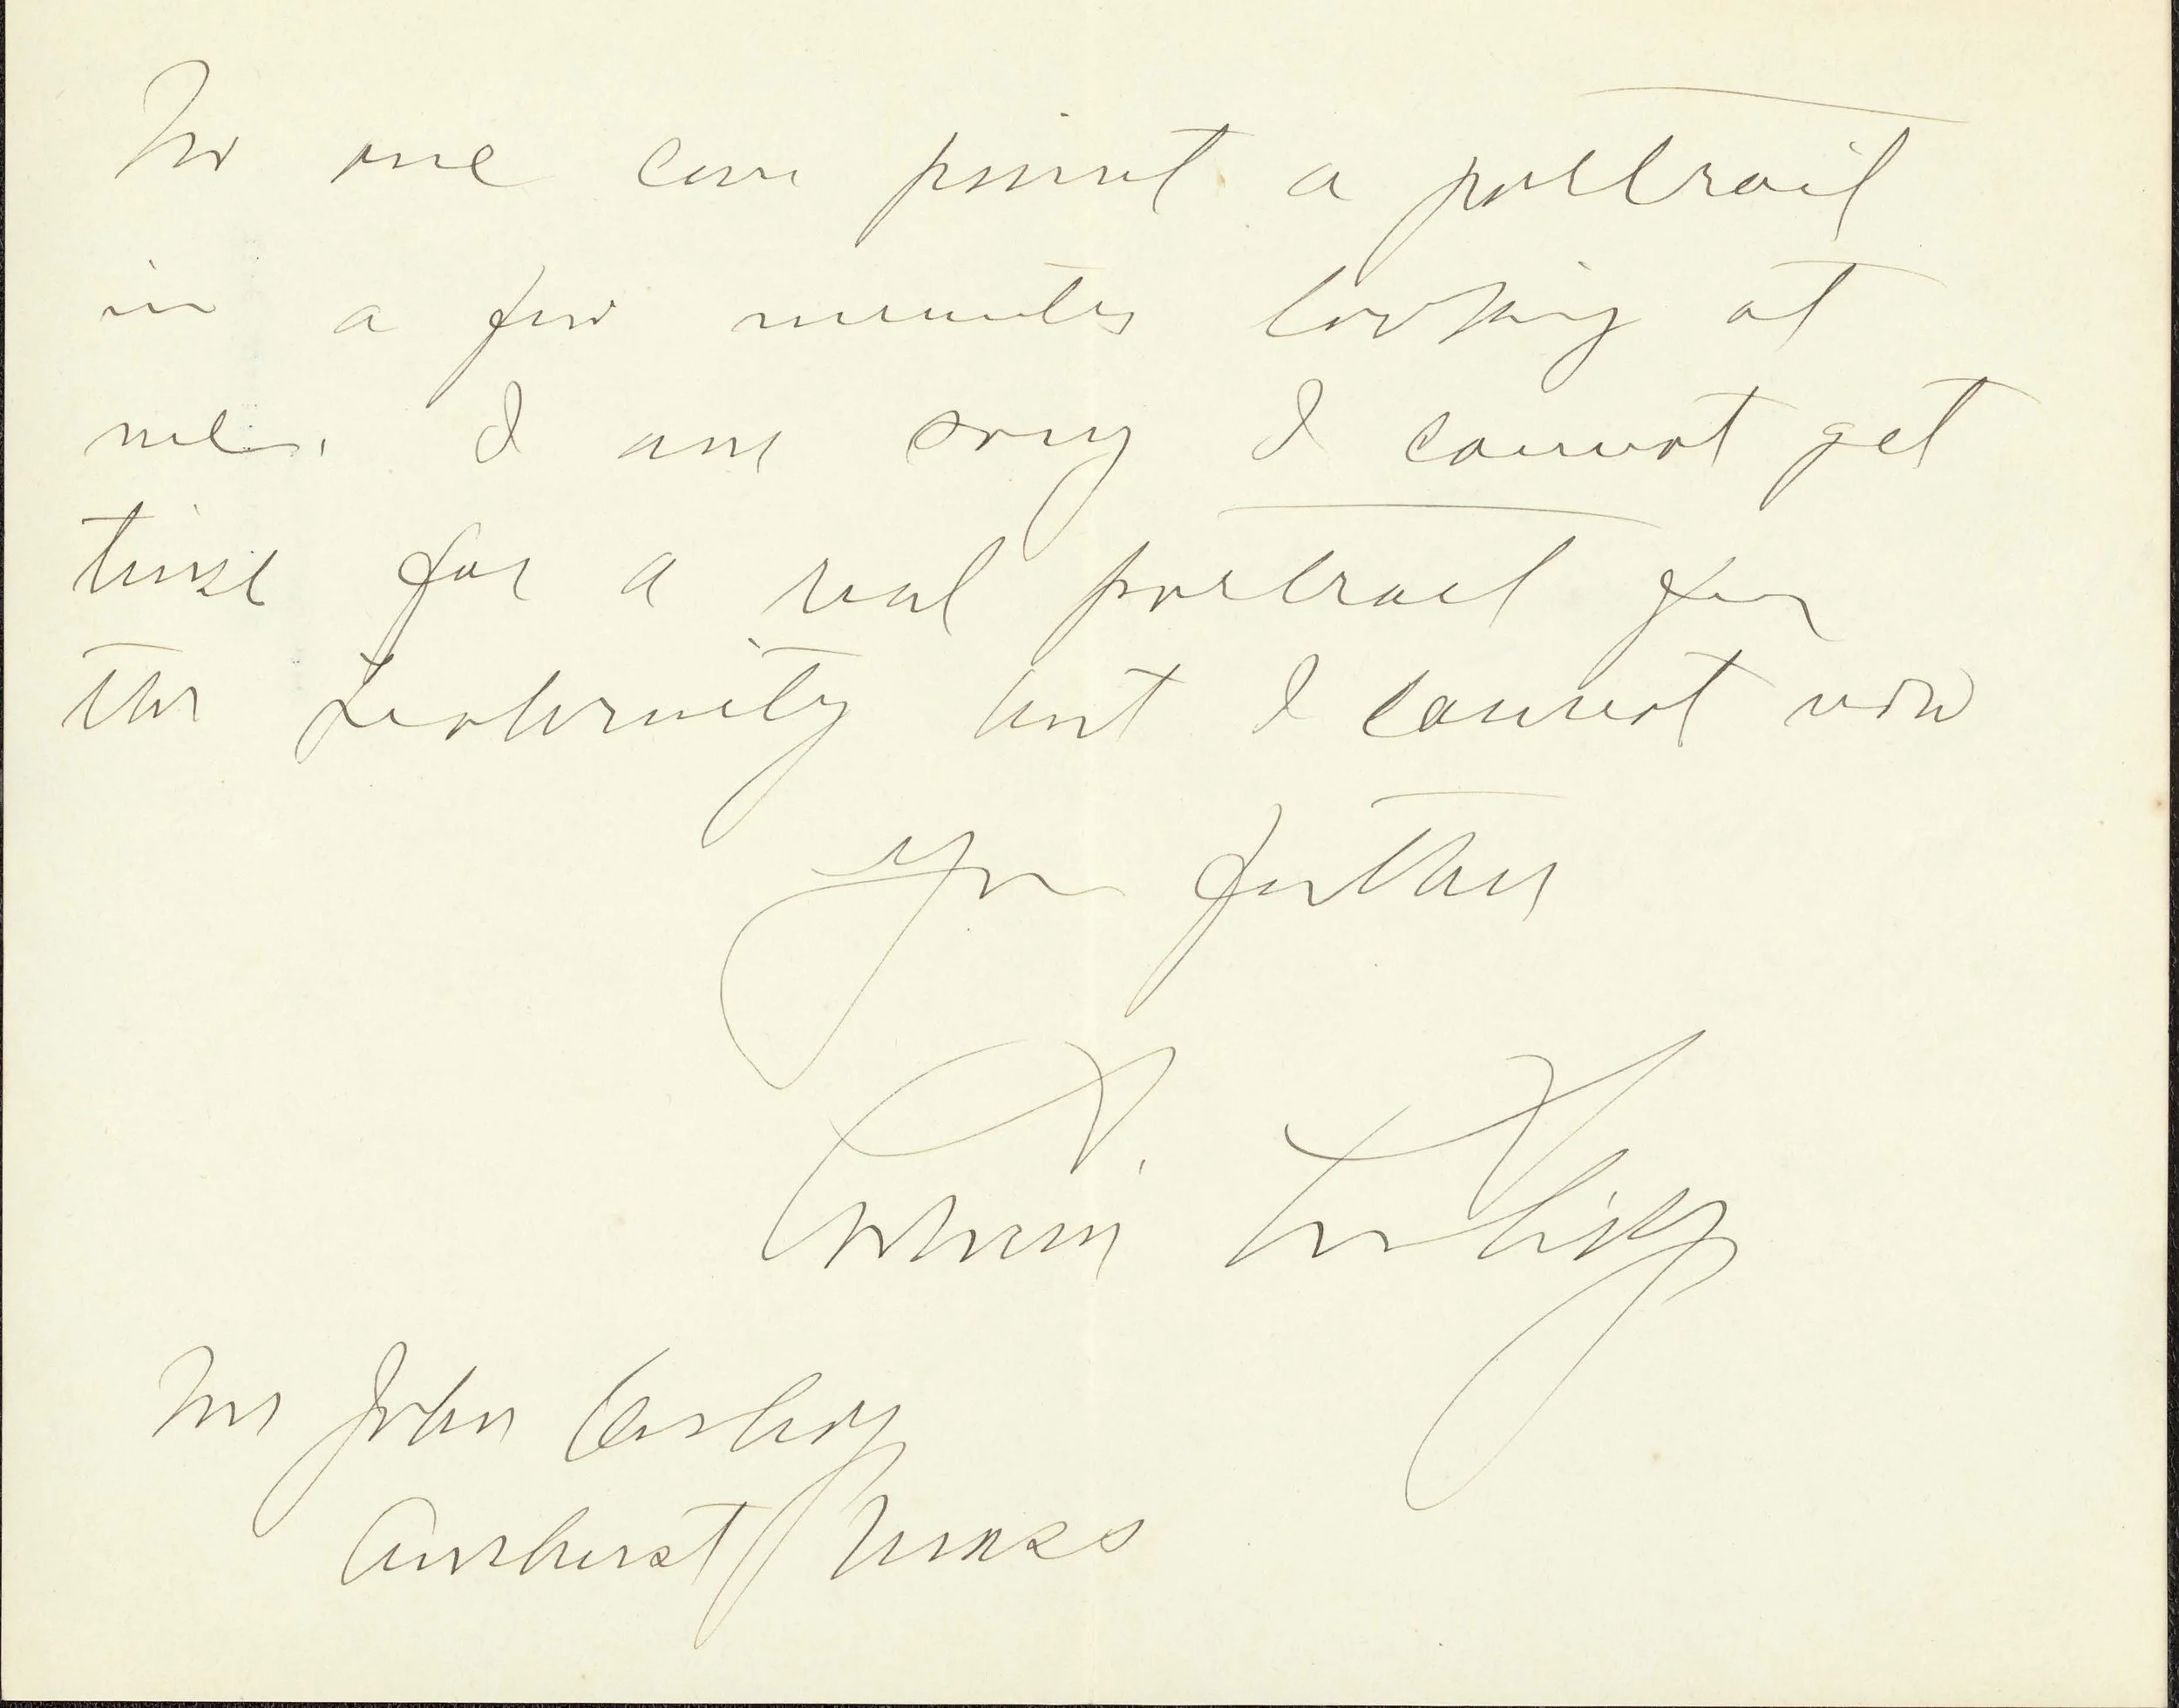 No one can paint a portrait
in a few minutes looking at
me. I am sorry I cannot get
time for a real portrait for
the fraternity but I cannot now
Your father
Calvin Coolidge
Mr John Coolidge
Amherst Mass